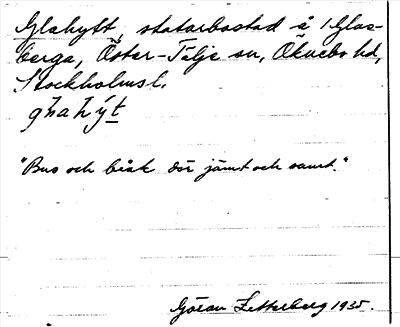 Glahytt, statarbostad å Glas-
berga, Öster-Tälje sn, Öknebo hd,
Stockholmsl.
g l a h ý t
"Bus och bråk där jämt och samt."
Göran Zetterberg 1935.